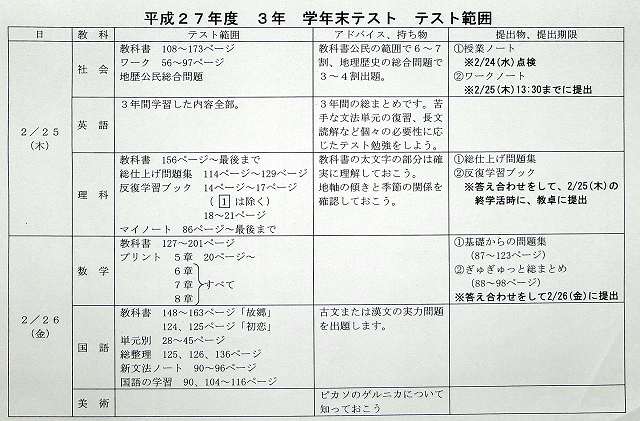 平成２７年度　３年　学年末テスト　テスト範囲
日　教科　テスト範囲　アドバイス、持ち物　提出物、提出期限
２／２５
(木)
社会
教科書　108～173ページ
ワーク　56～97ページ
地歴公民総合問題
教科書公民の範囲で６～７
割、地理歴史の総合問題で
３～４割出題。
①授業ノート
※2/24(水)点検
②ワークノート
※2/25(木)13:30までに提出
英語
３年間学習した内容全部。
３年間の総まとめです。苦
手な文法単元の復習、長文
読解など個々の必要性に応
じたテスト勉強をしよう。
理科
教科書　156ページ～最後まで
総仕上げ問題集　114ページ～129ページ
反復学習ブック　14ページ～17ページ
(１は除く)
18～21ページ
マイノート　86ページ～最後まで
教科書の太文字の部分は確
実に理解しておこう。
地軸の傾きと季節の関係を
確認しておこう。
①総仕上げ問題集
②反復学習ブック
※答え合わせをして、2/25(木)の
終学活時に、教卓に提出
２／２６
(金)
数学
教科書　127～201ページ
プリント　５章　20ページ～
６章
７章　すべて
８章
①基礎からの問題集
(87～123ページ)
②ぎゅぎゅっと総まとめ
(88～98ページ)
※答え合わせをして2/26(金)に提出
国語
教科書　148～163ページ「故郷」
124、125ページ「初恋」
単元別　28～45ページ
総整理　125、126、136ページ
新文法ノート　90～96ページ
国語の学習　90、104～116ページ
古文または漢文の実力問題
を出題します。
美術
ピカソのゲルニカについて
知っておこう